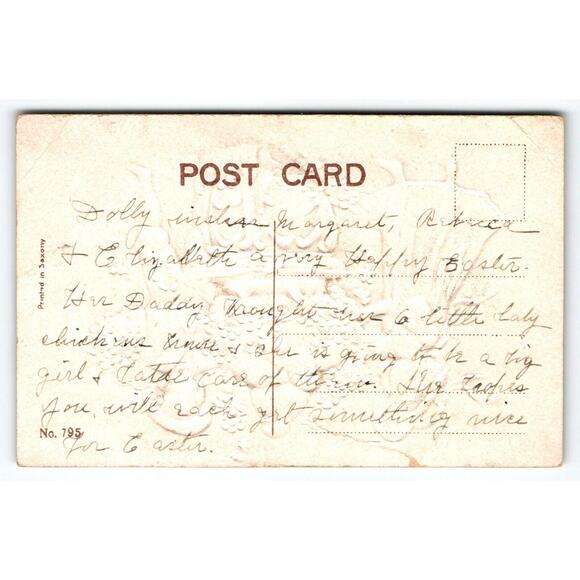 POST CARD
Printed in Saxony
Dolly wishes Margaret, Rebecca
& Elizabeth a very Happy Easter.
Her Daddy brought her 6 little baby
chickens home & she is going to be a big
girl & take care of them. She hopes
you will each get something nice
for Easter.
No. 795